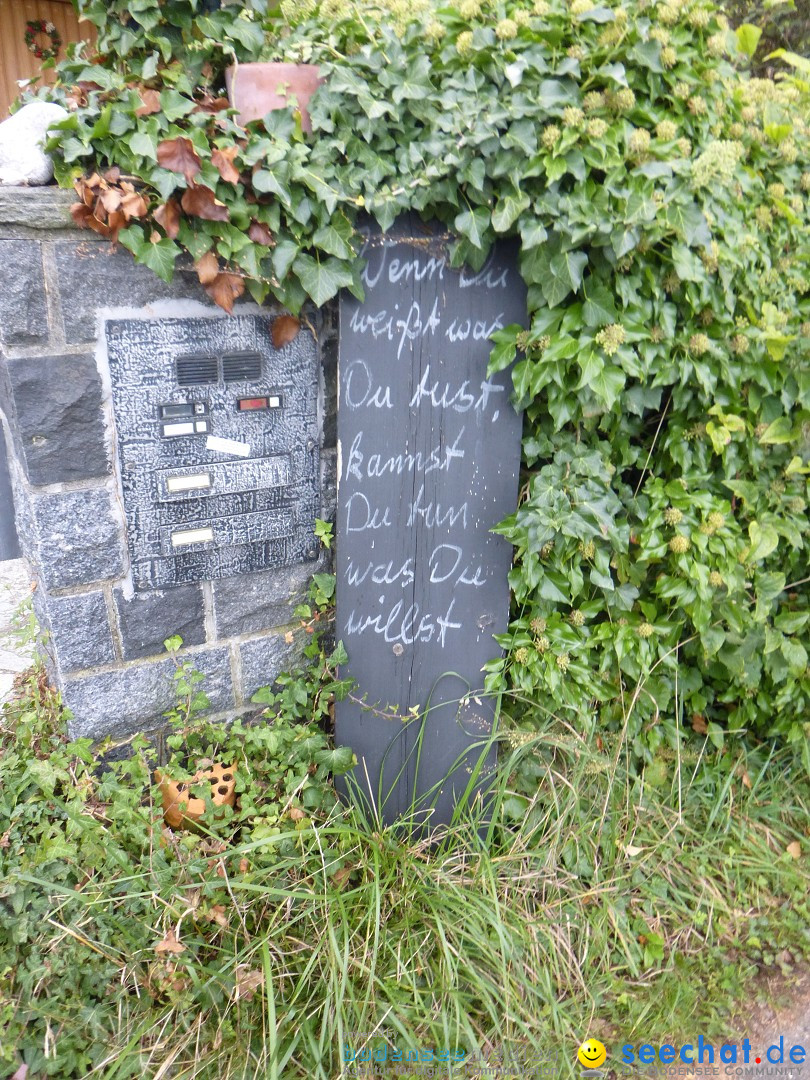 Wenn Du
weißt was
Du tust,
kannst
Du tun
was Du
willst
seechat.de